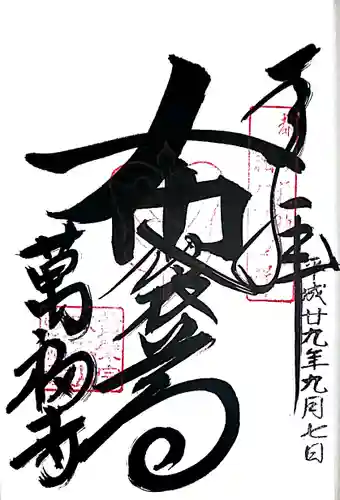 奉拝
平成廿九年九月七日
布袋尊
萬福寺